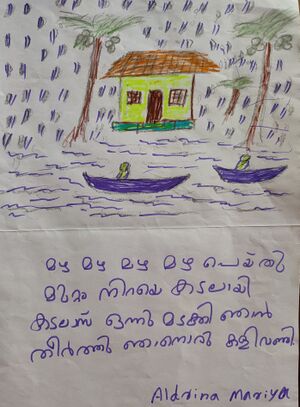 മഴ മഴ മഴ മഴ പെയ്തു
മുറ്റം നിറയെ കടലായി
കടലാസ് ഒന്നു മടക്കി ഞാൻ
തീർത്തു ഞാനൊരു കളിവഞ്ചി
Aldrina Mariya